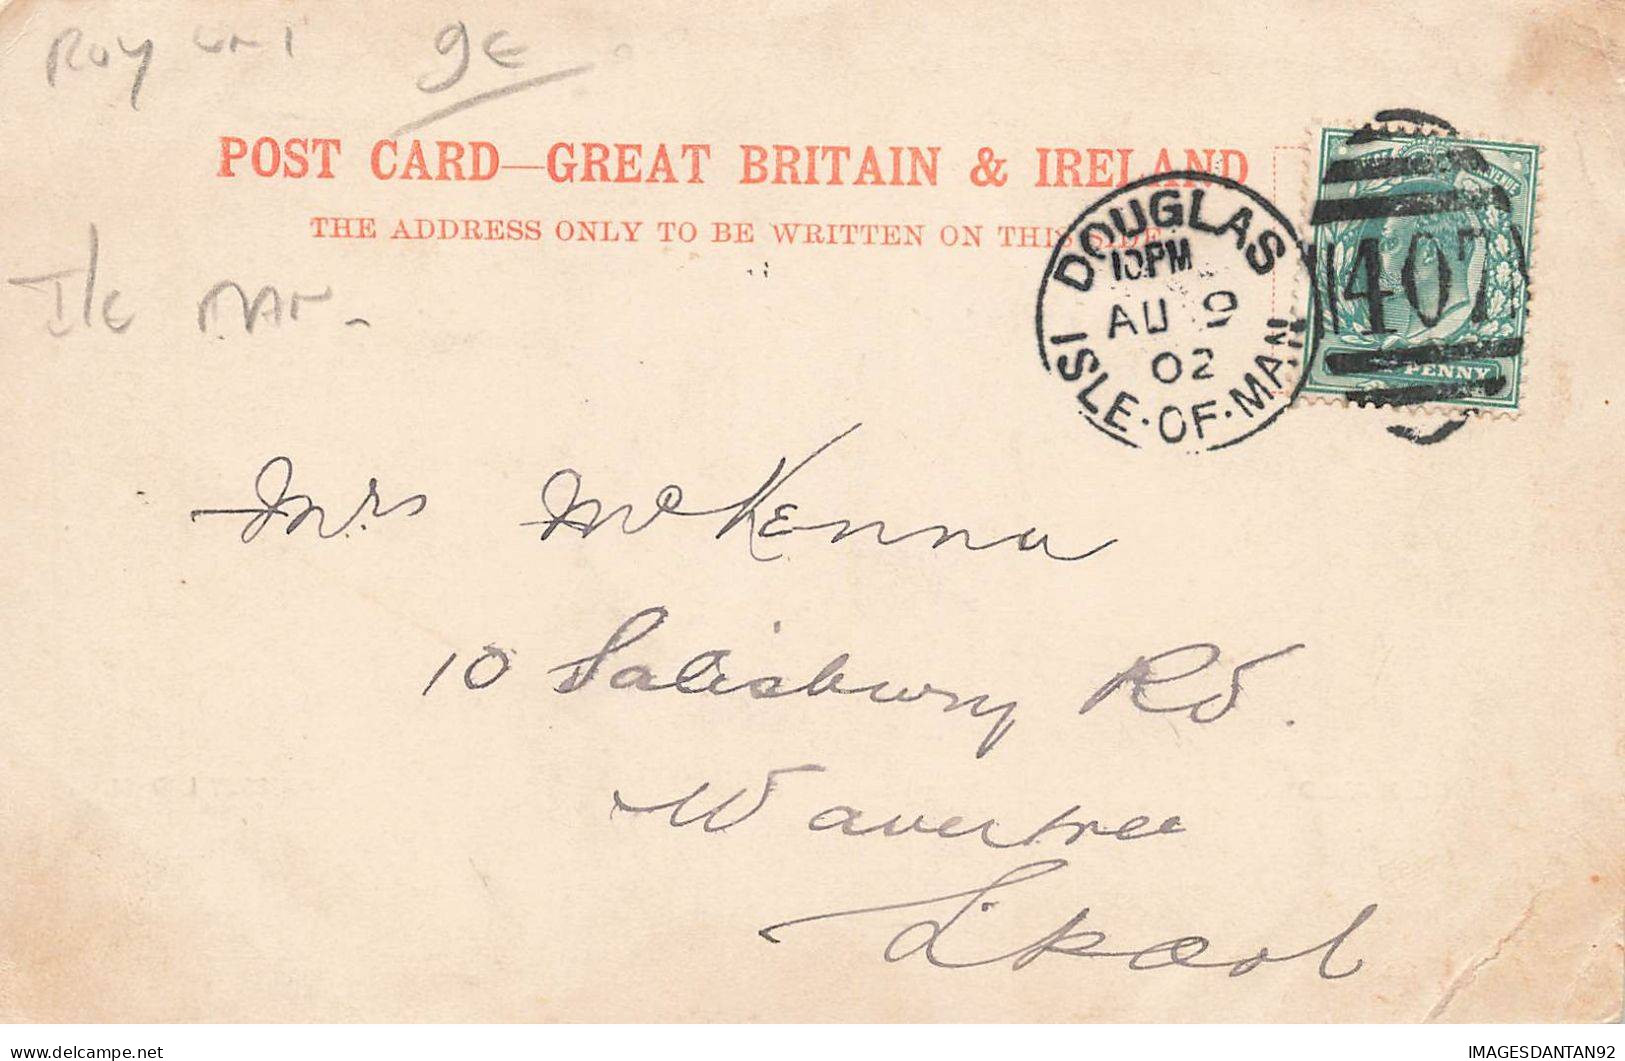 Roy Uni 9€
POST CARD—GREAT BRITAIN & IRELAND
THE ADDRESS ONLY TO BE WRITTEN ON THIS SIDE
I/E MAN -
DOUGLAS
10PM
AU 9
02
ISLE · OF · MAN
REVENUE
407
PENNY
Mrs McKenna
10 Salisbury Rd.
Wavertree
L'pool
IMAGESDANTAN92